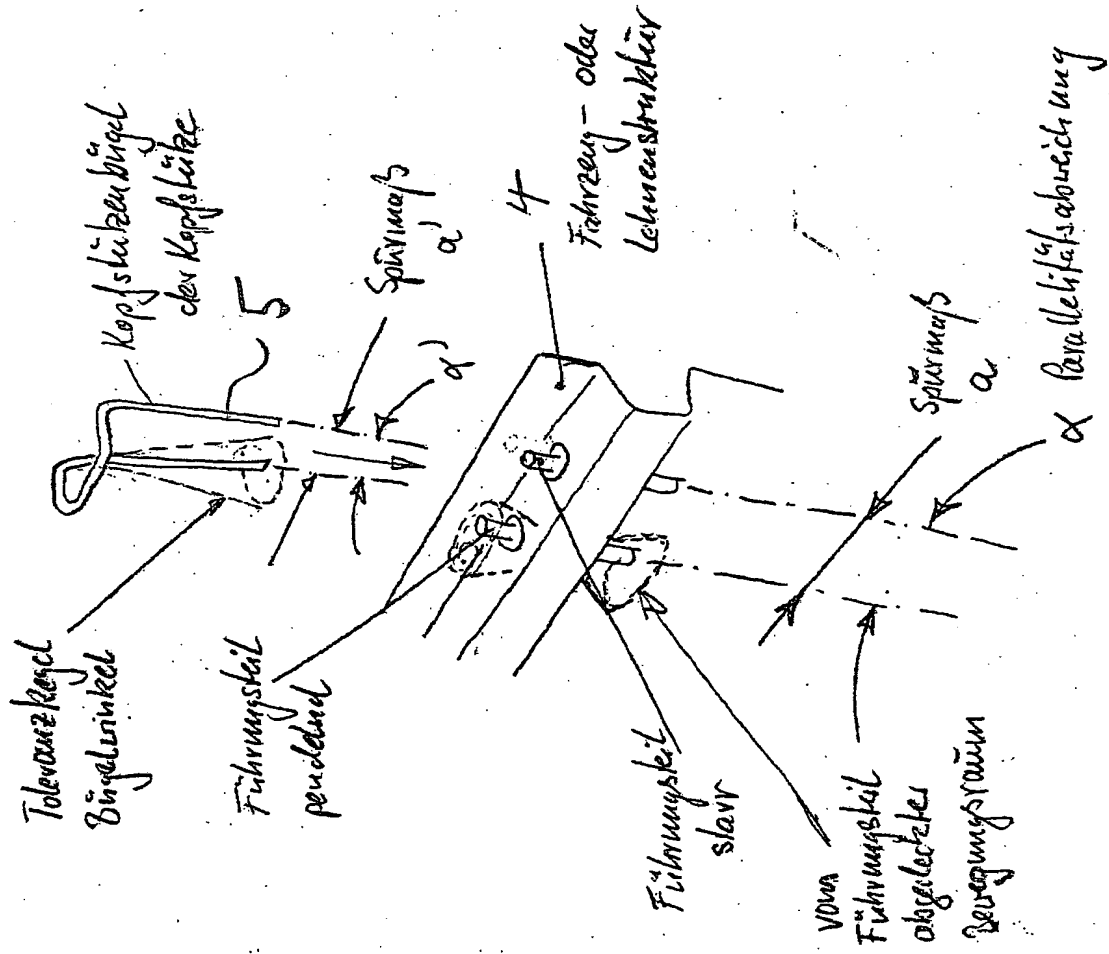 Toleranzkegel
Bügelwinkel
Führungsteil
pendelnd
Führungsteil
starr
vom
Führungsteil
abgedeckter
Bewegungsraum
Kopfstützenbügel
der Kopfstütze
5
Spurmaß
a'
α'
4
Fahrzeug- oder
Lehnenstruktur
Spurmaß
a
α Parallelitätsabweichung